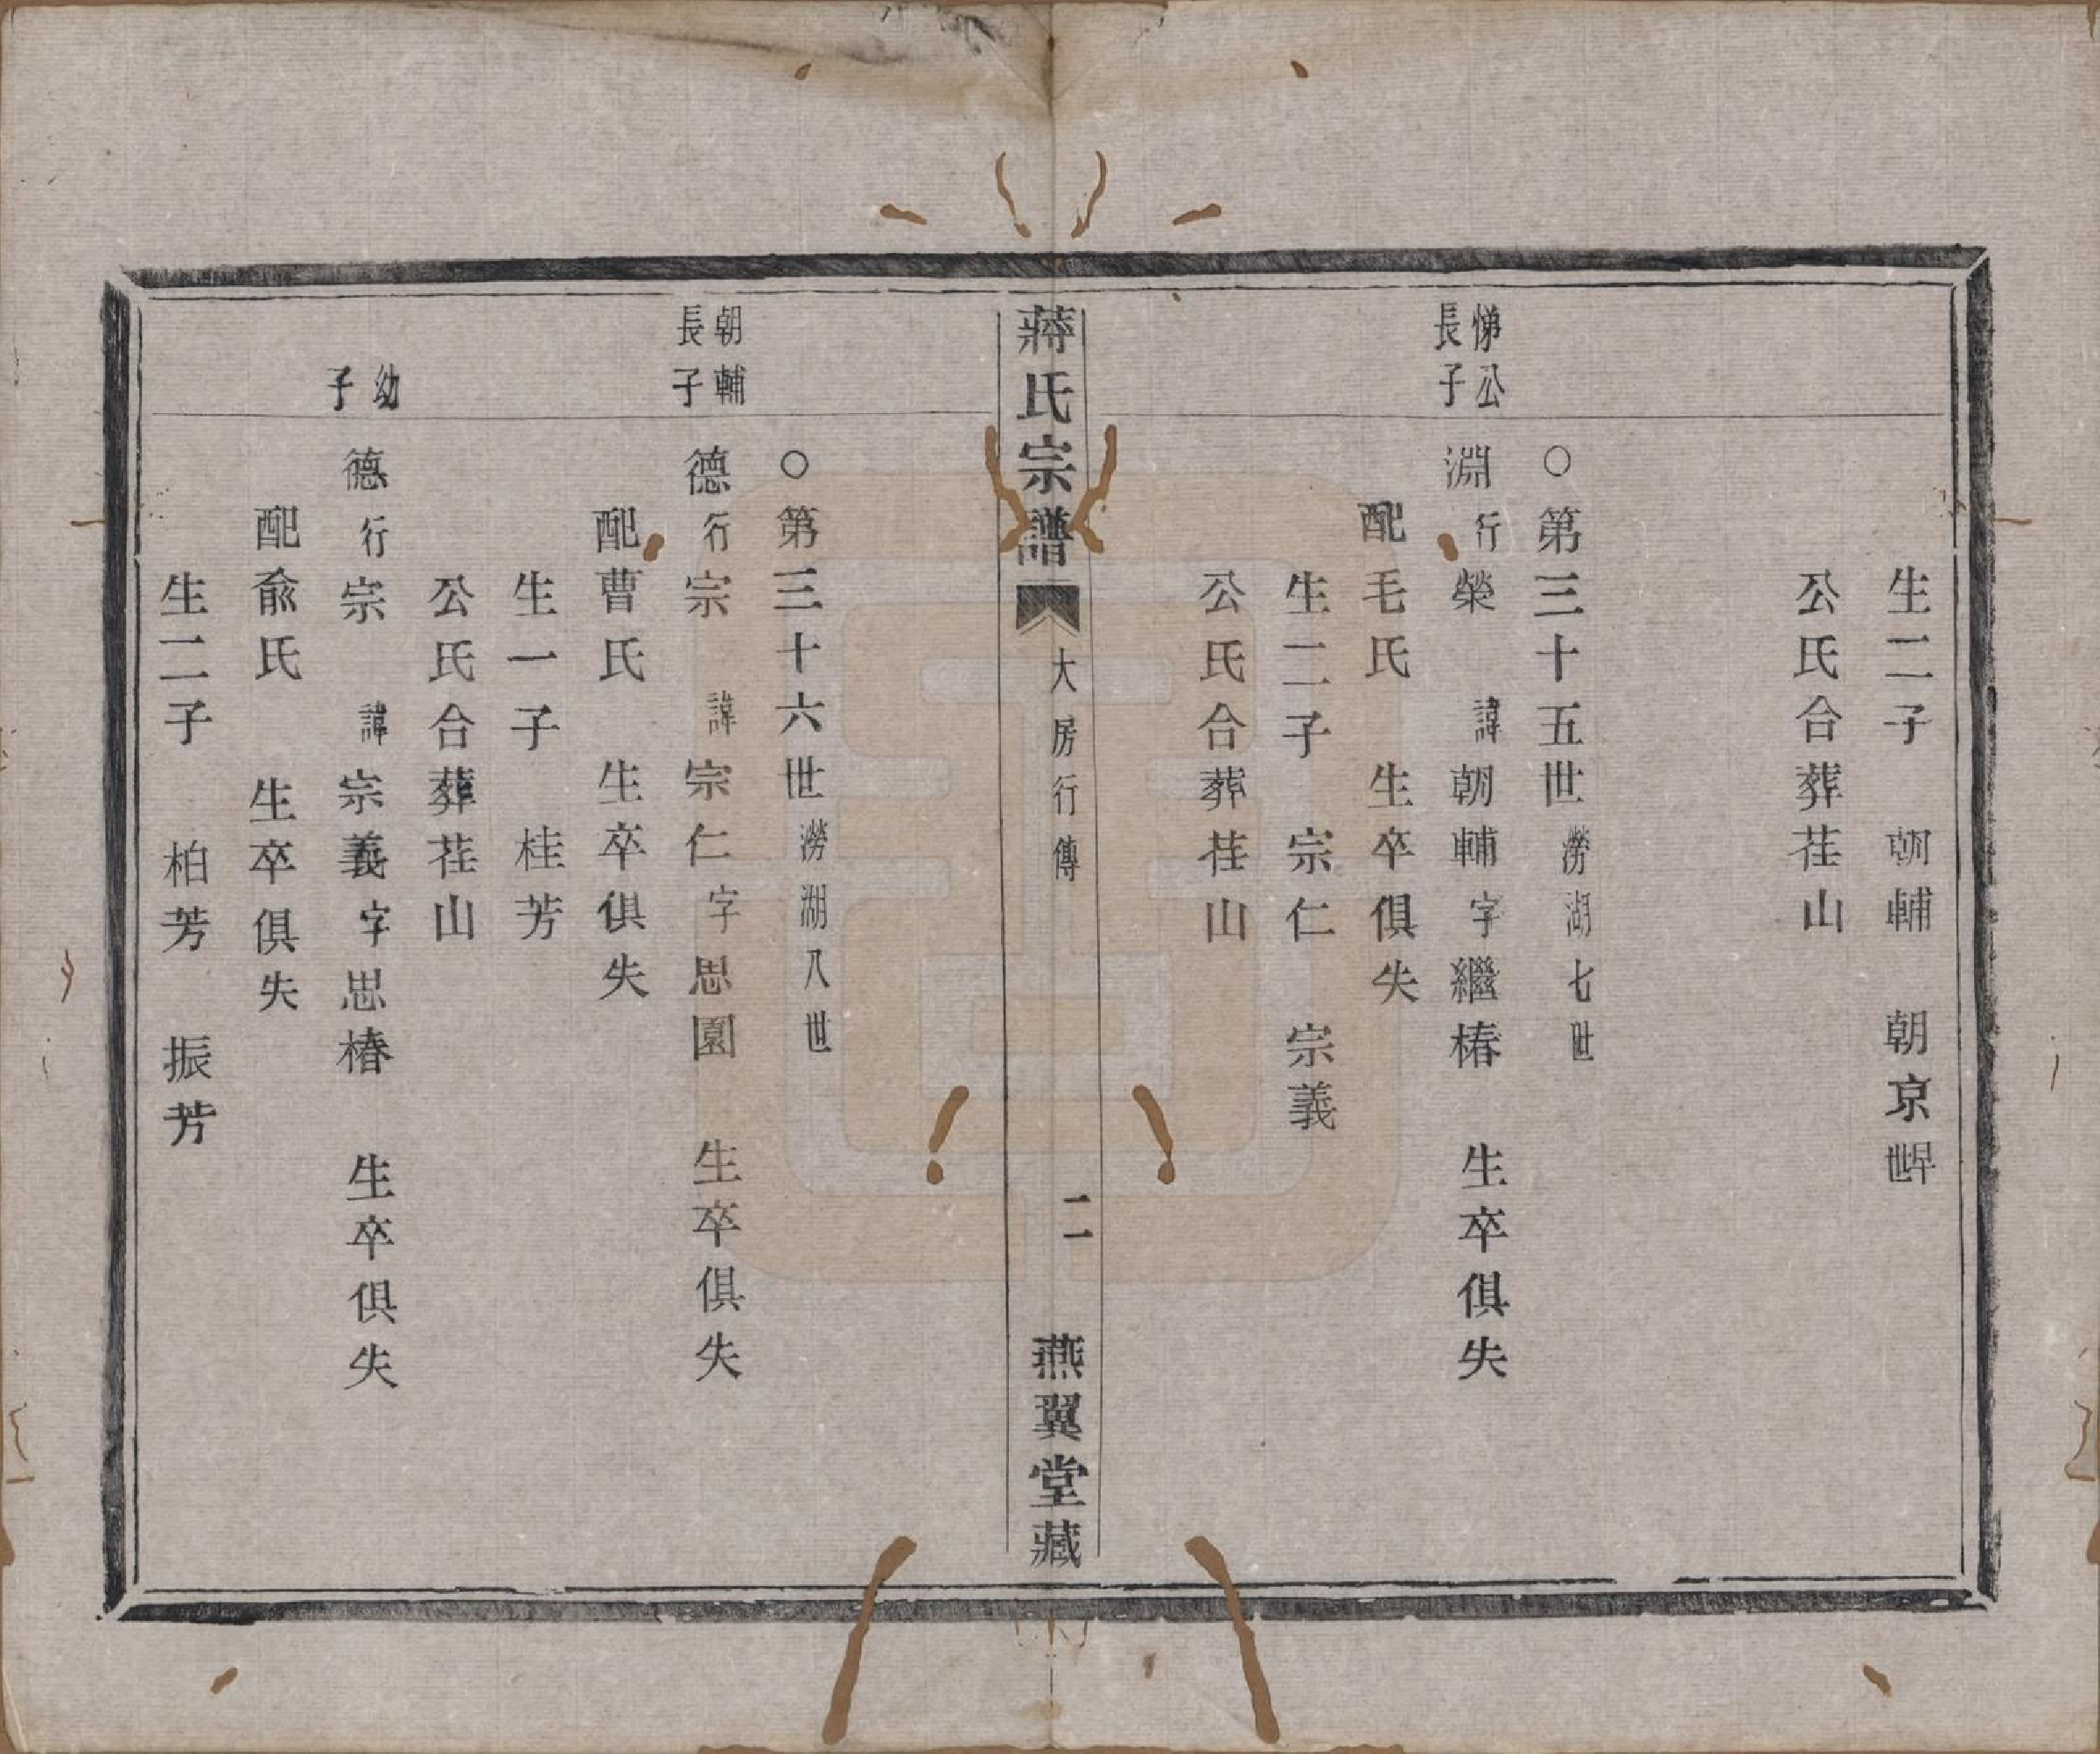 生二子　朝輔　朝京早世
公氏合葬茬山
○第三十五世澇湖七世
悌公長子
淵行榮　諱朝輔字繼椿　生卒俱失
配毛氏　生卒俱失
生二子　宗仁　宗義
公氏合葬茬山
蔣氏宗譜　大房行傳　二　燕翼堂藏
○第三十六世澇湖八世
朝輔長子
德行宗　諱宗仁字思園　生卒俱失
配曹氏　生卒俱失
生一子　桂芳
公氏合葬茬山
幼子
德行宗　諱宗義字思椿　生卒俱失
配俞氏　生卒俱失
生二子　柏芳　振芳